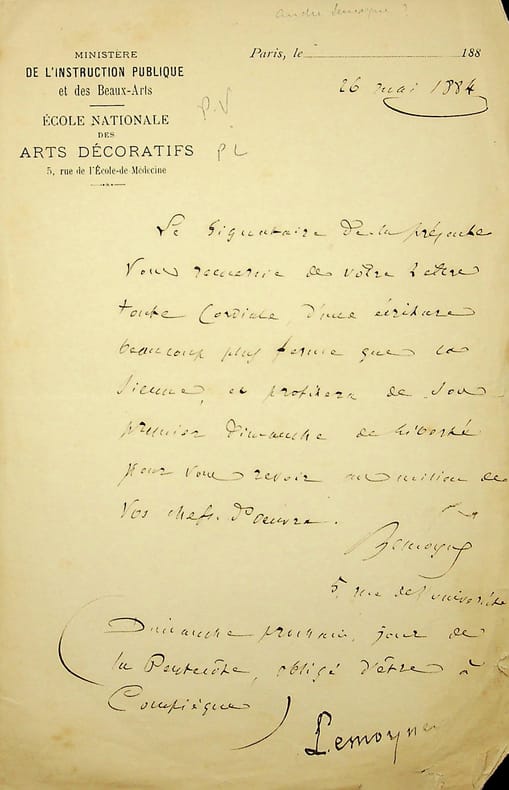 andré Lemoyne ?
MINISTÈRE
DE L'INSTRUCTION PUBLIQUE
et des Beaux-Arts
ÉCOLE NATIONALE
DES
ARTS DÉCORATIFS
5, rue de l'École-de-Médecine
Paris, le 188
26 mai 1884
P.V
PL
Le Signataire de la présente
Vous remercie de votre Lettre
toute Cordiale, d'une écriture
beaucoup plus ferme que la
Sienne, et profitera de Son
premier Dimanche de liberté
pour vous revoir au milieu de
Vos chefs-d'oeuvre.
Lemoyne
5, rue de l'université
(Dimanche prochain, jour de
la Pentecôte, obligé d'être à
Compiègne)
Lemoyne